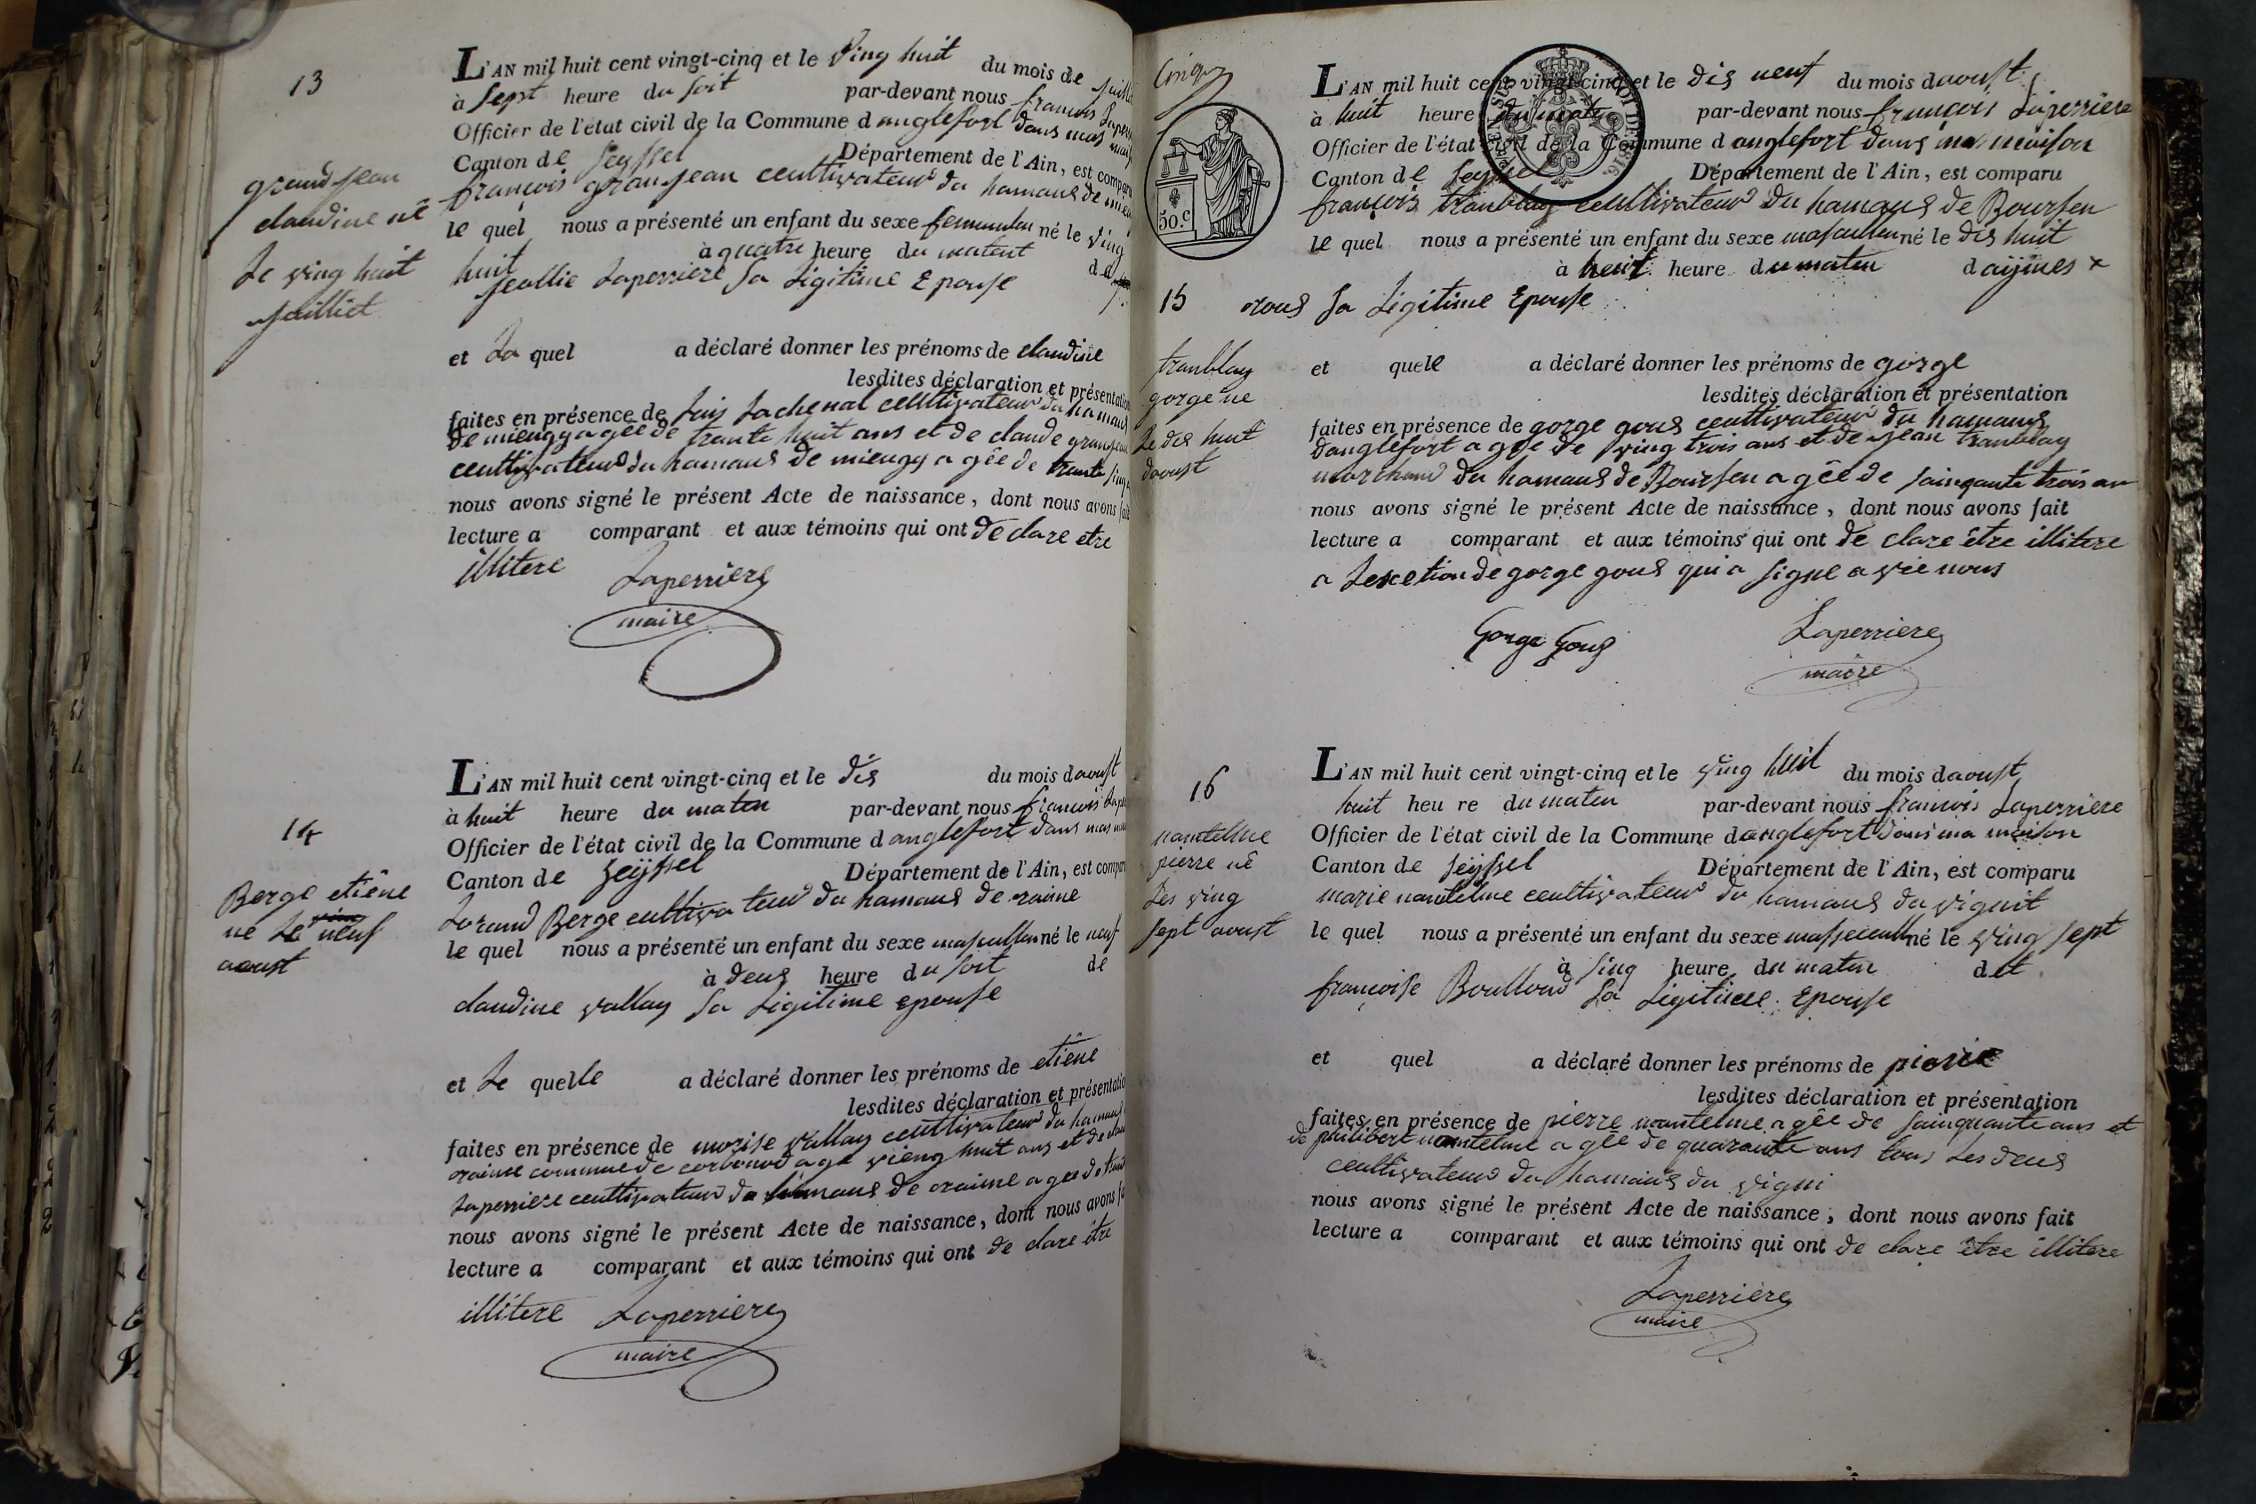 13
grand Jean
claudine né
Le ving huit
Juilliet
L'AN mil huit cent vingt-cinq et le Ving huit du mois de Juill
à Sept heure du soit par-devant nous francois Laperr
Officier de l'état civil de la Commune d anglefort dans mas mais
Canton de Seyssel Département de l'Ain, est compar
françois granjean ceultivateur du hamaus de mieu
le quel nous a présenté un enfant du sexe femmulen né le Ving
huit à quatre heure du matent de
Jeallie Laperriere Sa Ligitime Epouse
et La quel a déclaré donner les prénoms de claudine
lesdites déclaration et présentation
faites en présence de Luis Lachenal ceultivateur du hamaus
de mieugy agée de trante huit ans et de claude granjean
ceultivateur du hamaus de mieugy a gée de trante sinq
nous avons signé le présent Acte de naissance, dont nous avons fait
lecture a comparant et aux témoins qui ont de clare etre
illitere Laperriere
maire
14
Berge etiéne
né Le neuf
aoust
L'AN mil huit cent vingt-cinq et le dis du mois daoust
à huit heure du maten par-devant nous francois Lape
Officier de l'état civil de la Commune d anglefort dans mas mai
Canton de Seyssel Département de l'Ain, est compar
Lorand Berge cultivateur du hamaus de oraime
le quel nous a présenté un enfant du sexe mascullen né le neuf
à deus heure du soit de
claudine vallay Sa Ligitime epouse
et Le quelle a déclaré donner les prénoms de etiéne
lesdites déclaration et présentatio
faites en présence de morise vallay ceultivateur du hamaus
oraime commune de corbonod age vieng huit ans et de clau
Laperriere ceultivateur du hamaus de oraime a gee de trant
nous avons signé le présent Acte de naissance, dont nous avons fa
lecture a comparant et aux témoins qui ont de clare être
illitere Laperriere
maire
50.c
15
tranblay
gorge né
Le dis huit
daoust
L'AN mil huit cent vingt-cinq et le dis neuf du mois daoust
à huit heure du maten par-devant nous françois Laperriere
Officier de l'état civil de la Commune d anglefort dans ma maison
Canton de Seyssel Département de l'Ain, est comparu
françois tranblay ceultivateur du hamaus de Boursen
le quel nous a présenté un enfant du sexe masculen né le dis huit
à heuit heure du maten
Sa Ligitime Epouse
et quele a déclaré donner les prénoms de gorge
lesdites déclaration et présentation
faites en présence de gorge gous ceultivateur du hamaus
danglefort a gée de ving trois ans et de Jean tranblay
marchand du hamaus de Boursen a gée de sainqante trois an
nous avons signé le présent Acte de naissance, dont nous avons fait
lecture a comparant et aux témoins qui ont de clare être illitere
a Lexetion de gorge gous qui a signe a vée nous
Gorge Gous Laperriere
maire
16
nantelme
pierre né
Les ving
sept aoust
L'AN mil huit cent vingt-cinq et le ving huit du mois daoust
huit heure du maten par-devant nous francois Laperriere
Officier de l'état civil de la Commune d anglefort dans ma maison
Canton de Seyssel Département de l'Ain, est comparu
marie nantelme ceultivateur du hamaus du vignit
le quel nous a présenté un enfant du sexe massecull né le ving sept
à sinq heure du maten det
françoise Boulloud Sa Ligitime Epouse
et quel a déclaré donner les prénoms de pierre
lesdites déclaration et présentation
faites en présence de pierre nantelme a gée de sainquante ans et
de philibert nantelme a gée de quarante ans tous Les deus
ceultivateur du hamaus du vigni
nous avons signé le présent Acte de naissance, dont nous avons fait
lecture a comparant et aux témoins qui ont de clare être illitere
Laperriere
maire